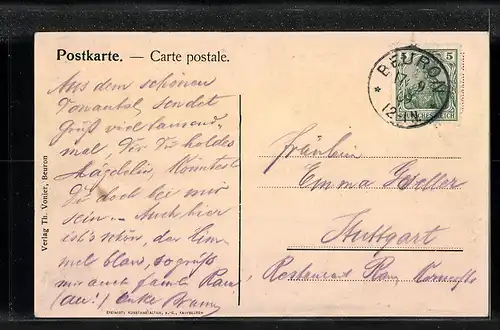 Postkarte. — Carte postale.
Aus dem schönen
Donautal, sendet
Gruß viel tausend-
mal Dir Du holdes
Mägdelein, Könntest
Du doch bei mir
sein. Auch hier
ist's schön, der Him-
mel blau, so grüßt
mir auch
Verlag Th. Vonier, Beuron
BEURON
17 9
5
DEUTSCHES REICH
Fräulein
Emma
Stuttgart
Restaurant